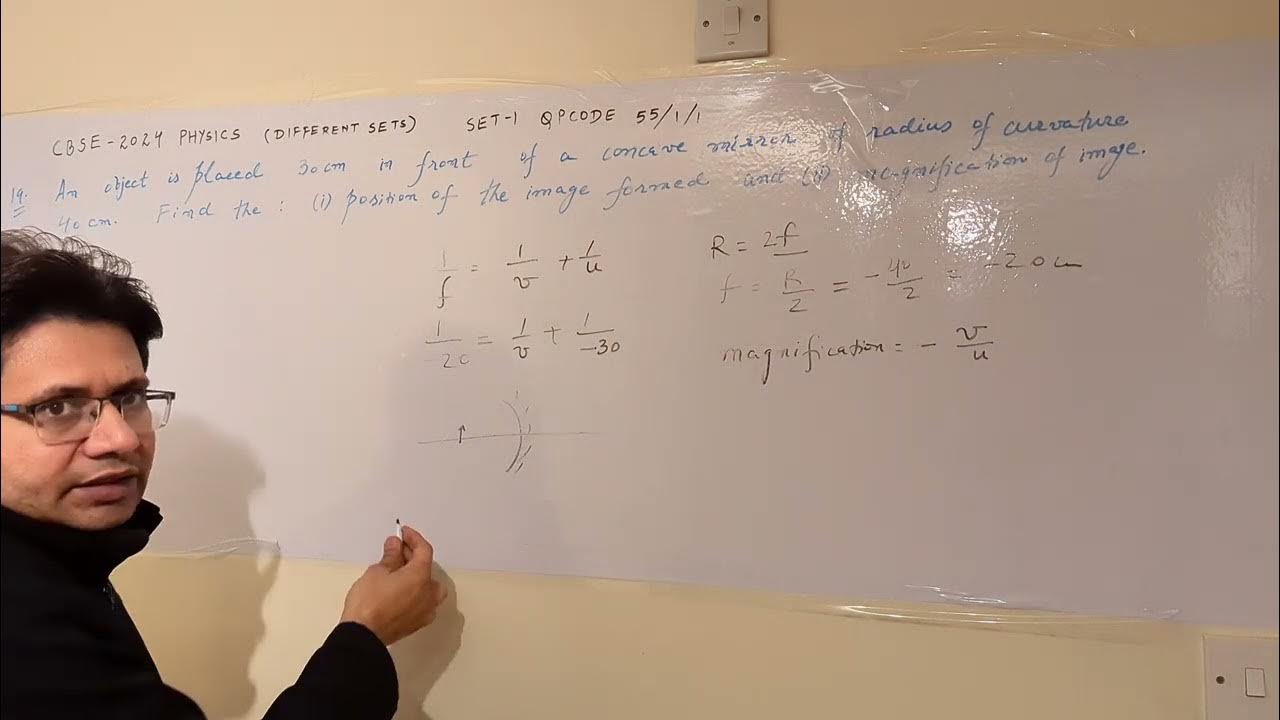 CBSE-2024 PHYSICS (DIFFERENT SETS) SET-1 QPCODE 55/1/1
19. An object is placed 30cm in front of a concave mirror of radius of curvature
40 cm. Find the : (i) position of the image formed and (ii) magnification of image.
1/f = 1/v + 1/u
1/-20 = 1/v + 1/-30
R = 2f
f = R/2 = -40/2 = -20 cm
magnification = - v/u